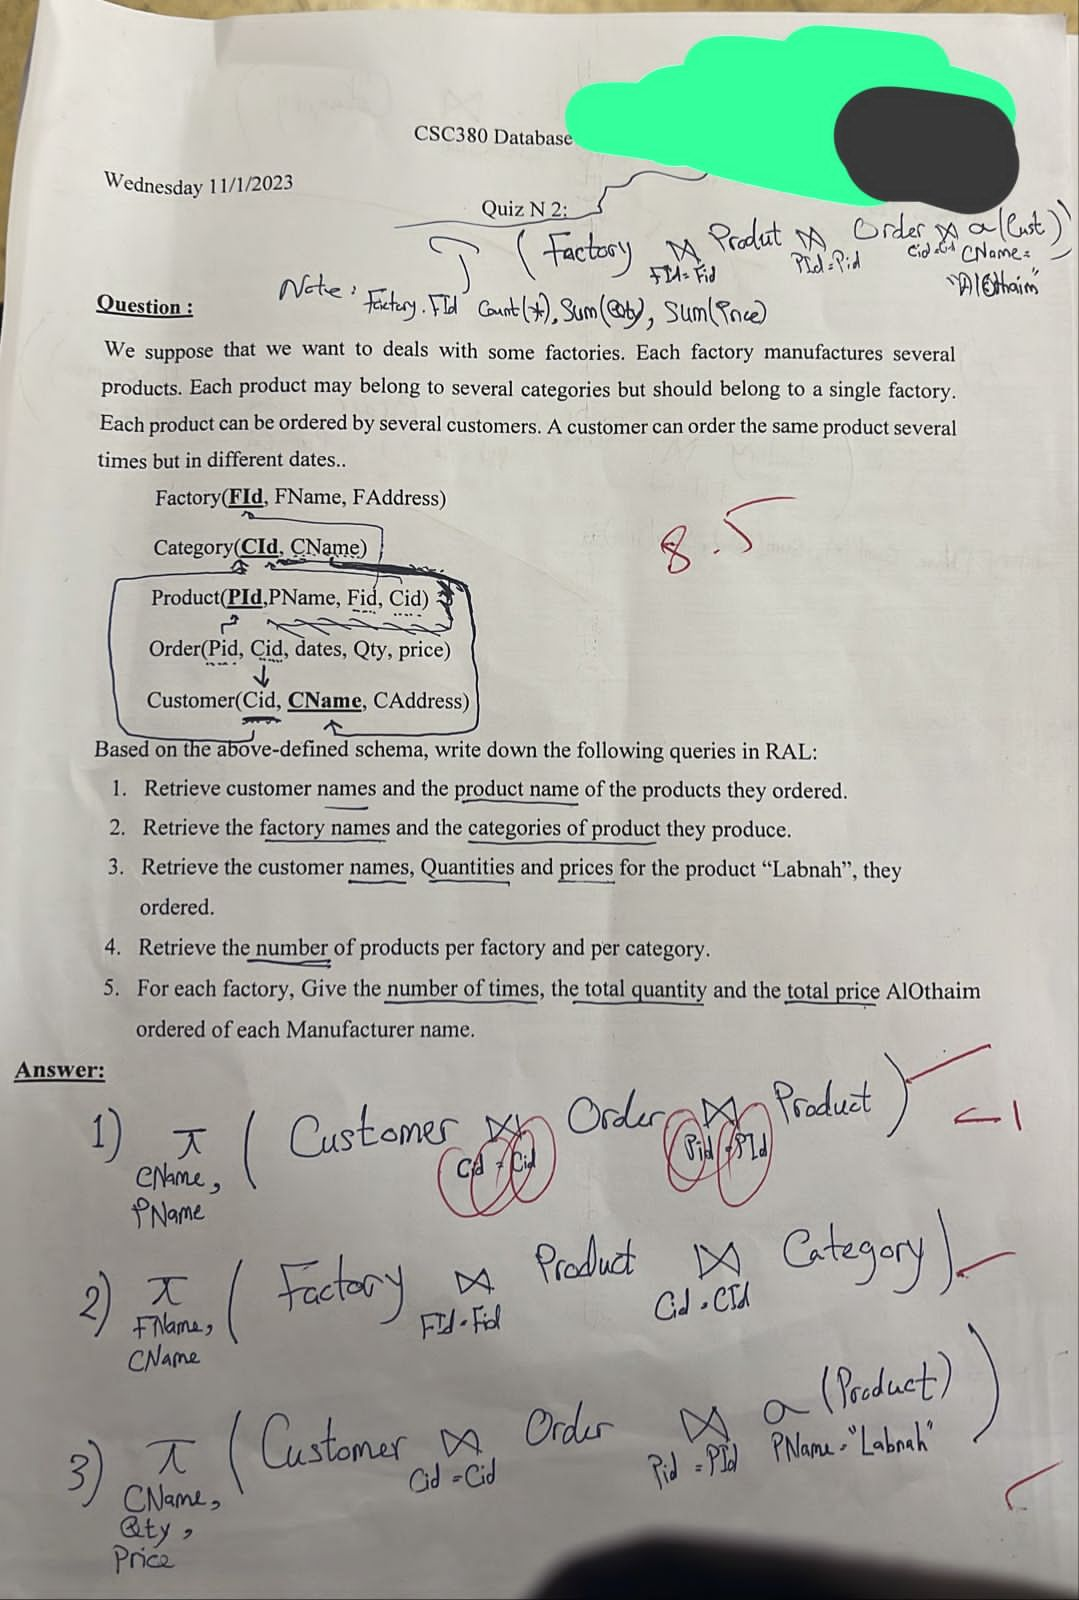 CSC380 Database
Wednesday 11/1/2023
Quiz N 2:
( Factory ⋈ FId=Fid Produt ⋈ PId=Pid Order ⋈ Cid=Cid σ (Cust) )
CName=
"AlOthaim"
Note: Factory.FId Count(*), Sum(Qty), Sum(Price)
Question :
We suppose that we want to deals with some factories. Each factory manufactures several
products. Each product may belong to several categories but should belong to a single factory.
Each product can be ordered by several customers. A customer can order the same product several
times but in different dates..
Factory(FId, FName, FAddress)
8.5
Category(CId, CName)
Product(PId,PName, Fid, Cid)
Order(Pid, Cid, dates, Qty, price)
Customer(Cid, CName, CAddress)
Based on the above-defined schema, write down the following queries in RAL:
1. Retrieve customer names and the product name of the products they ordered.
2. Retrieve the factory names and the categories of product they produce.
3. Retrieve the customer names, Quantities and prices for the product “Labnah”, they
ordered.
4. Retrieve the number of products per factory and per category.
5. For each factory, Give the number of times, the total quantity and the total price AlOthaim
ordered of each Manufacturer name.
Answer:
1) π ( Customer ⋈ Order ⋈ Product )
-1
CName, Cid = Cid Pid = PId
PName
2) π ( Factory ⋈ Product ⋈ Category )
FName, FId = Fid Cid = CId
CName
3) π ( Customer ⋈ Order ⋈ σ (Product) )
CName, Cid = Cid Pid = PId PName = "Labnah"
Qty,
Price